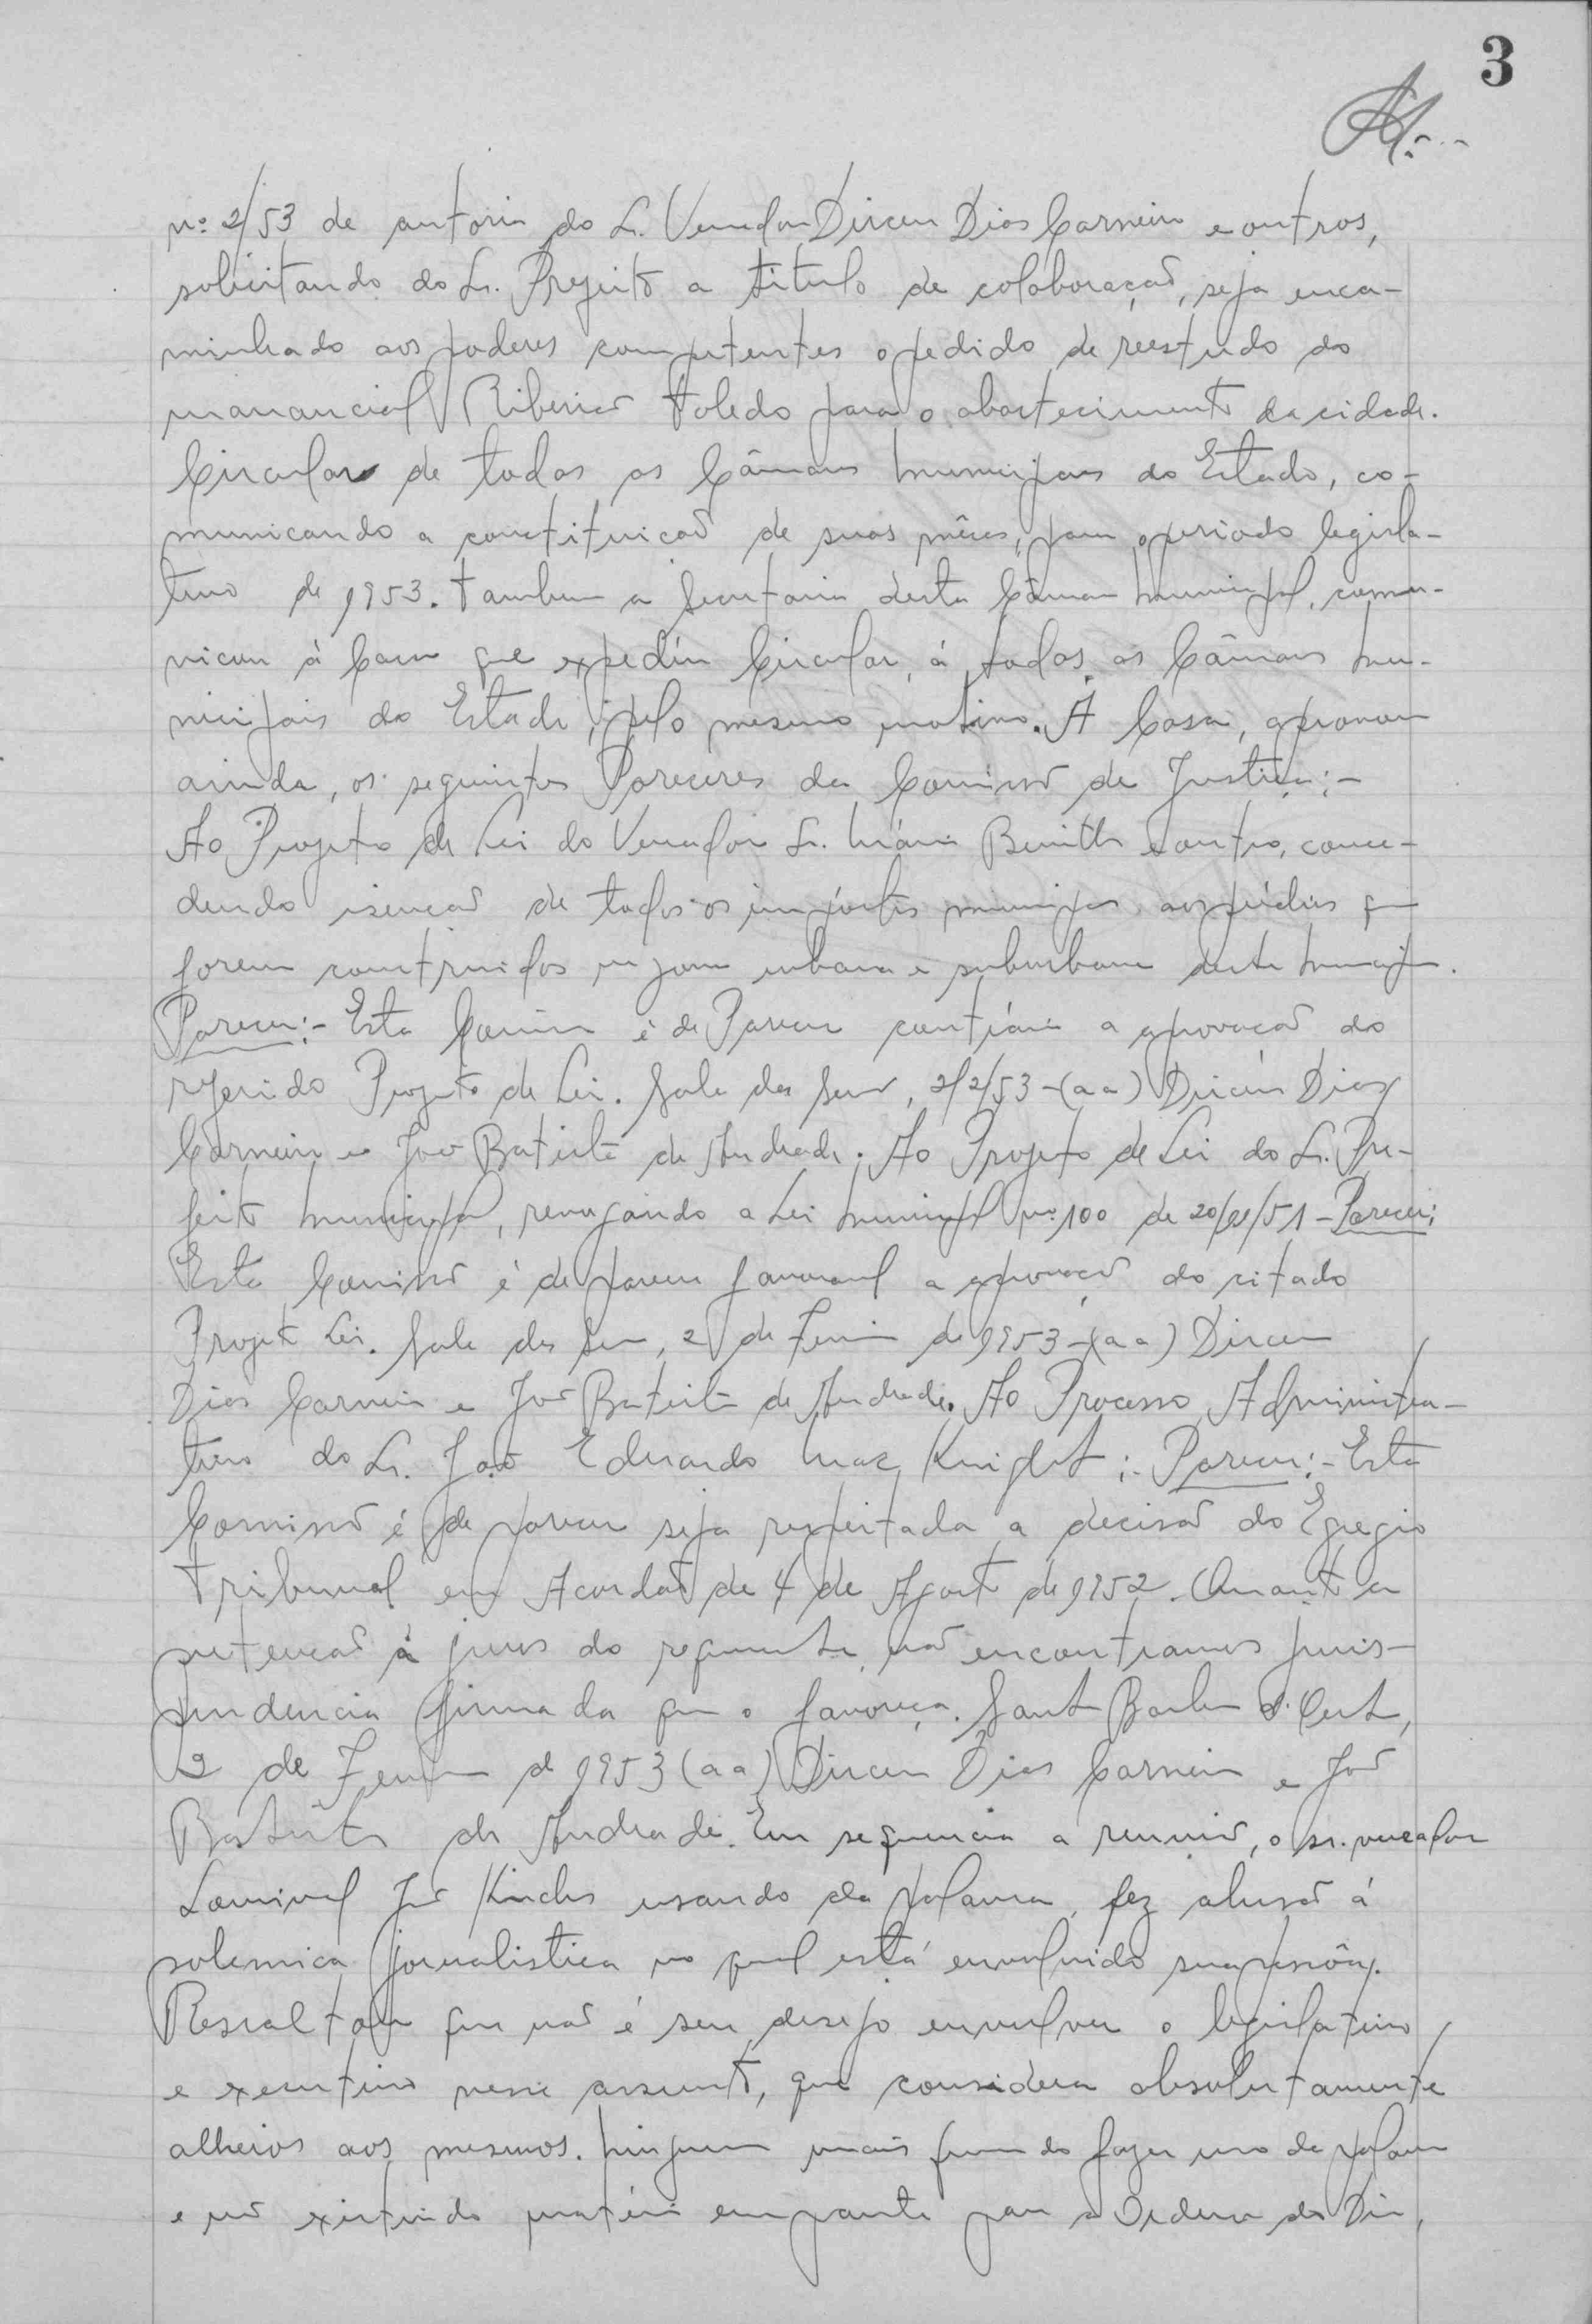 3
nº 2/53 de autoria do Sr. Vereador Dirceu Dias Carneiro e outros,
solicitando do Sr. Prefeito a titulo de colaboração, seja enca-
minhado aos poderes competentes o pedido de reestudo do
manancial Ribeirão Toledo para o abastecimento da cidade.
Circular de todas as Câmaras Municipais do Estado, co-
municando a constituição de suas mêsas, para o periodo legisla-
tivo de 1953. Tambem a Secretaria desta Câmara Municipal, comu-
nicou à Casa que expediu Circular, á todas as Câmaras Mu-
nicipais do Estado, pelo mesmo motivo. A Casa, aprovou
ainda, os seguintes Pareceres da Comissão de Justiça:-
Ao Projeto de Lei do Vereador Sr. Mário e outro, conce-
dendo isenção de todos os impóstos municipais aos prédios que
forem construidos na zona urbana e suburbana deste Municipio.
Parecer:- Esta Comissão é de Parecer contrário a aprovação do
referido Projeto de Lei. Sala das Sessões, 2/2/53-(aa) Dirceu Dias
Carneiro e João Batista de Andrade. Ao Projeto de Lei do Sr. Pre-
feito Municipal, revogando a Lei Municipal nº 100 de 20/ /51-Parecer:
Esta Comissão é de parecer favoravel a aprovação do citado
Projeto Lei. Sala das Sessões, 2 de Fevereiro de 1953-(aa) Dirceu
Dias Carneiro e João Batista de Andrade. Ao Processo Administra-
tivo do Sr. João Eduardo Mac Knight:- Parecer:- Esta
Comissão é de parecer seja respeitada a decisão do Egregio
Tribunal em Acordão de 4 de Agosto de 1952. Quanto a
pretenção á juros do requerente, não encontramos juris-
prudencia firmada que o favoreça. Santa Barbara d'Oeste,
2 de Fevereiro de 1953 (aa) Dirceu Dias Carneiro e João
Batista de Andrade. Em sequencia a reunião, o sr. vereador
Lourival José usando da palavra, fez alusão á
polemica jornalistica no qual está envolvido sua pessôa.
Ressaltou que não é seu desejo envolver o legislativo
e executivo nesse assunto, que considera absolutamente
alheios aos mesmos. Ninguem mais querendo fazer uso da palavra
e não existindo matéria em pauta para a Ordem do Dia,